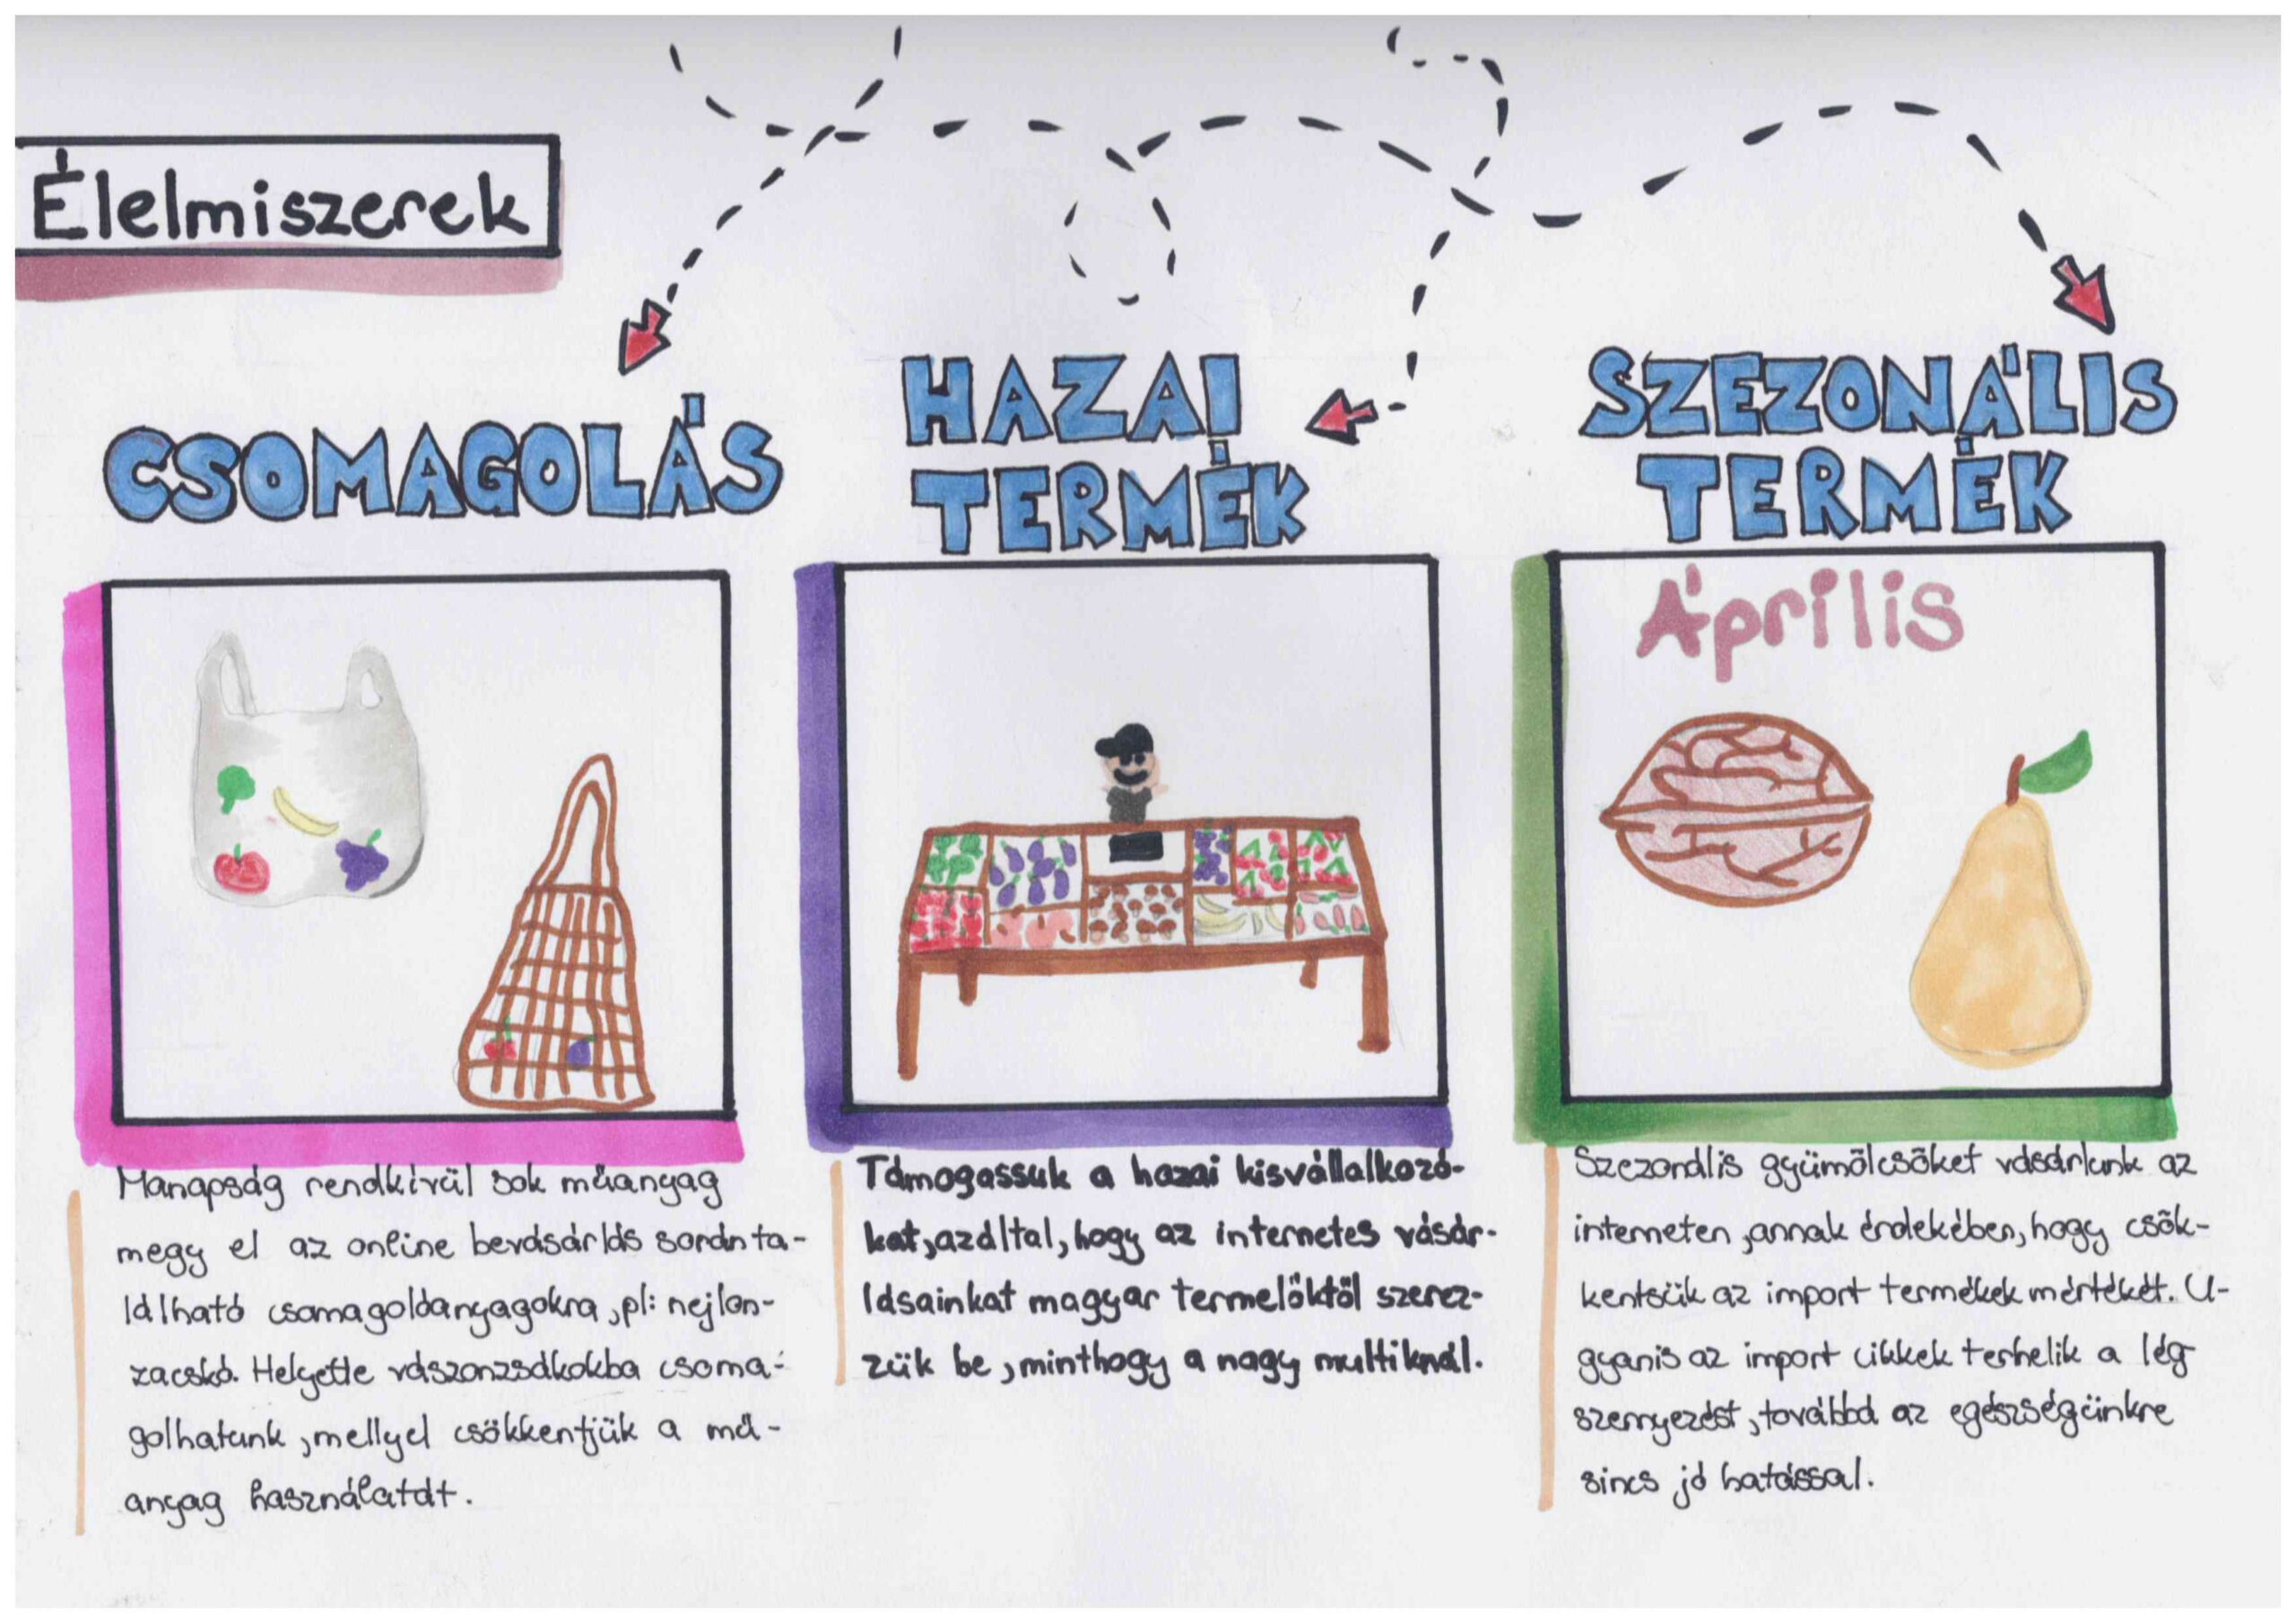 Élelmiszerek
CSOMAGOLÁS
HAZAI
TERMÉK
SZEZONÁLIS
TERMÉK
Április
Manapság rendkívül sok műanyag
megy el az online bevásárlás során ta-
lálható csomagolóanyagokra, pl: nejlon-
zacskó. Helyette vászonzsákokba csoma-
golhatunk, mellyel csökkentjük a mű-
anyag használatát.
Támogassuk a hazai kisvállalkozó-
kat, azáltal, hogy az internetes vásár-
lásainkat magyar termelőktől szerez-
zük be, minthogy a nagy multiknál.
Szezonális gyümölcsöket vásárlunk az
interneten, annak érdekében, hogy csök-
kentsük az import termékek mértékét. U-
gyanis az import cikkek terhelik a lég
szennyezést, továbbá az egészségünkre
sincs jó hatással.